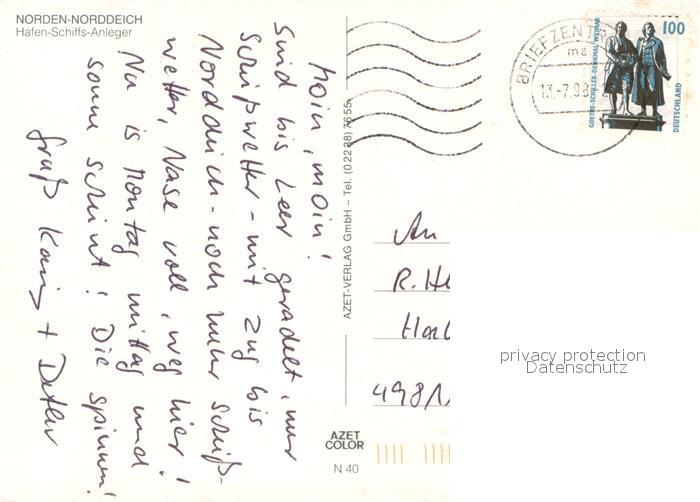 NORDEN-NORDDEICH
Hafen-Schiffs-Anleger
Moin, moin!
Sind bis Leer geradelt, nur
Schißwetter - mit Zug bis
Norddeich - noch mehr Schiß-
wetter, Nase voll, weg hier!
Nu is Montag mittag und
Sonne scheint! Die spinnen!
Gruß Karin + Detlev
AZET-VERLAG GmbH – Tel. (02238) 7655
BRIEFZENTR
ma
13.-7.98
100
GOETHE-SCHILLER-DENKMAL WEIMAR
DEUTSCHLAND
An
R. He
Hor
4981
privacy protection
Datenschutz
AZET
COLOR
N 40